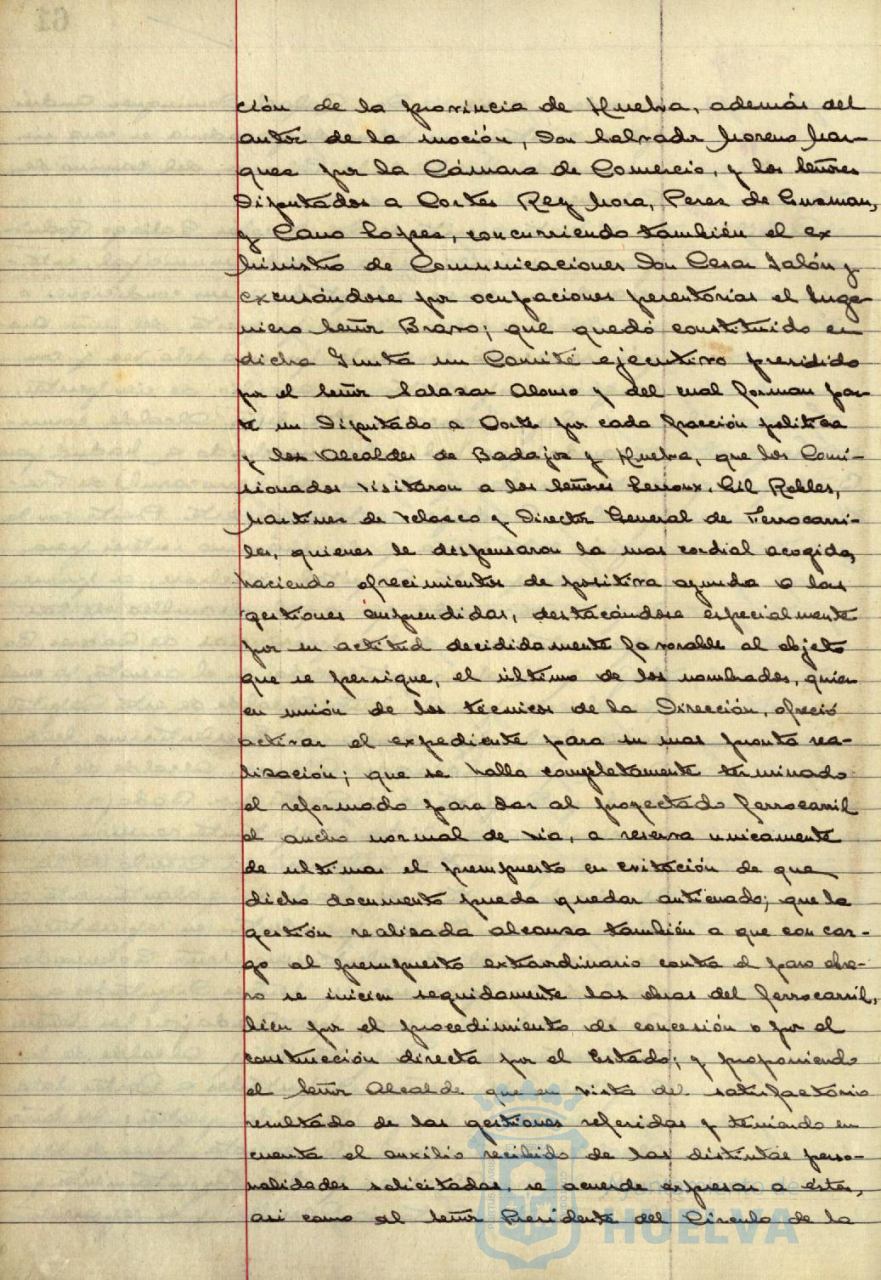 ción de la provincia de Huelva, además del
autor de la moción, Don Salvador Moreno Mar-
quez por la Cámara de Comercio, y los Señores
Diputados a Cortes Rey Mora, Perez de Gusman,
y Cano Lopez, concurriendo también el ex
Ministro de Comunicaciones Don Cesar Jalón y
excusándose por ocupaciones perentorias el Inge-
niero Señor Bravo; que quedó constituido en
dicha Junta un Comité ejecutivo presidido
por el Señor Salazar Alonso y del cual forman par-
te un Diputado a Cortes por cada fracción politica
y los Alcaldes de Badajoz y Huelva, que los Comi-
sionados visitaron a los Señores Lerroux, Gil Robles,
Martinez de Velasco y Director General de Ferrocarri-
les, quienes le dispensaron la mas cordial acogida,
haciendo ofrecimientos de positiva ayuda a las
gestiones emprendidas, destacándose especialmente
por su actitud decididamente favorable al objeto
que se persigue, el último de los nombrados, quien
en unión de los técnicos de la Dirección, ofreció
activar el expediente para su mas pronta rea-
lización; que se halla completamente terminado
el reformado para dar al proyectado ferrocarril
el ancho normal de via, a reserva unicamente
de ultimar el presupuesto en evitación de que
dicho documento pueda quedar anticuado; que la
gestión realizada alcanza también a que con car-
go al presupuesto extraordinario contra el paro obre-
ro se inicien seguidamente las obras del ferrocarril,
bien por el procedimiento de concesión o por el
construcción directa por el Estado; y proponiendo
el Señor Alcalde que en vista del satisfactorio
resultado de las gestiones referidas y teniendo en
cuenta el auxilio recibido de las distintas perso-
nalidades solicitadas, se acuerde expresar a éstas,
asi como al Señor Presidente del Circulo de la
HUELVA
61